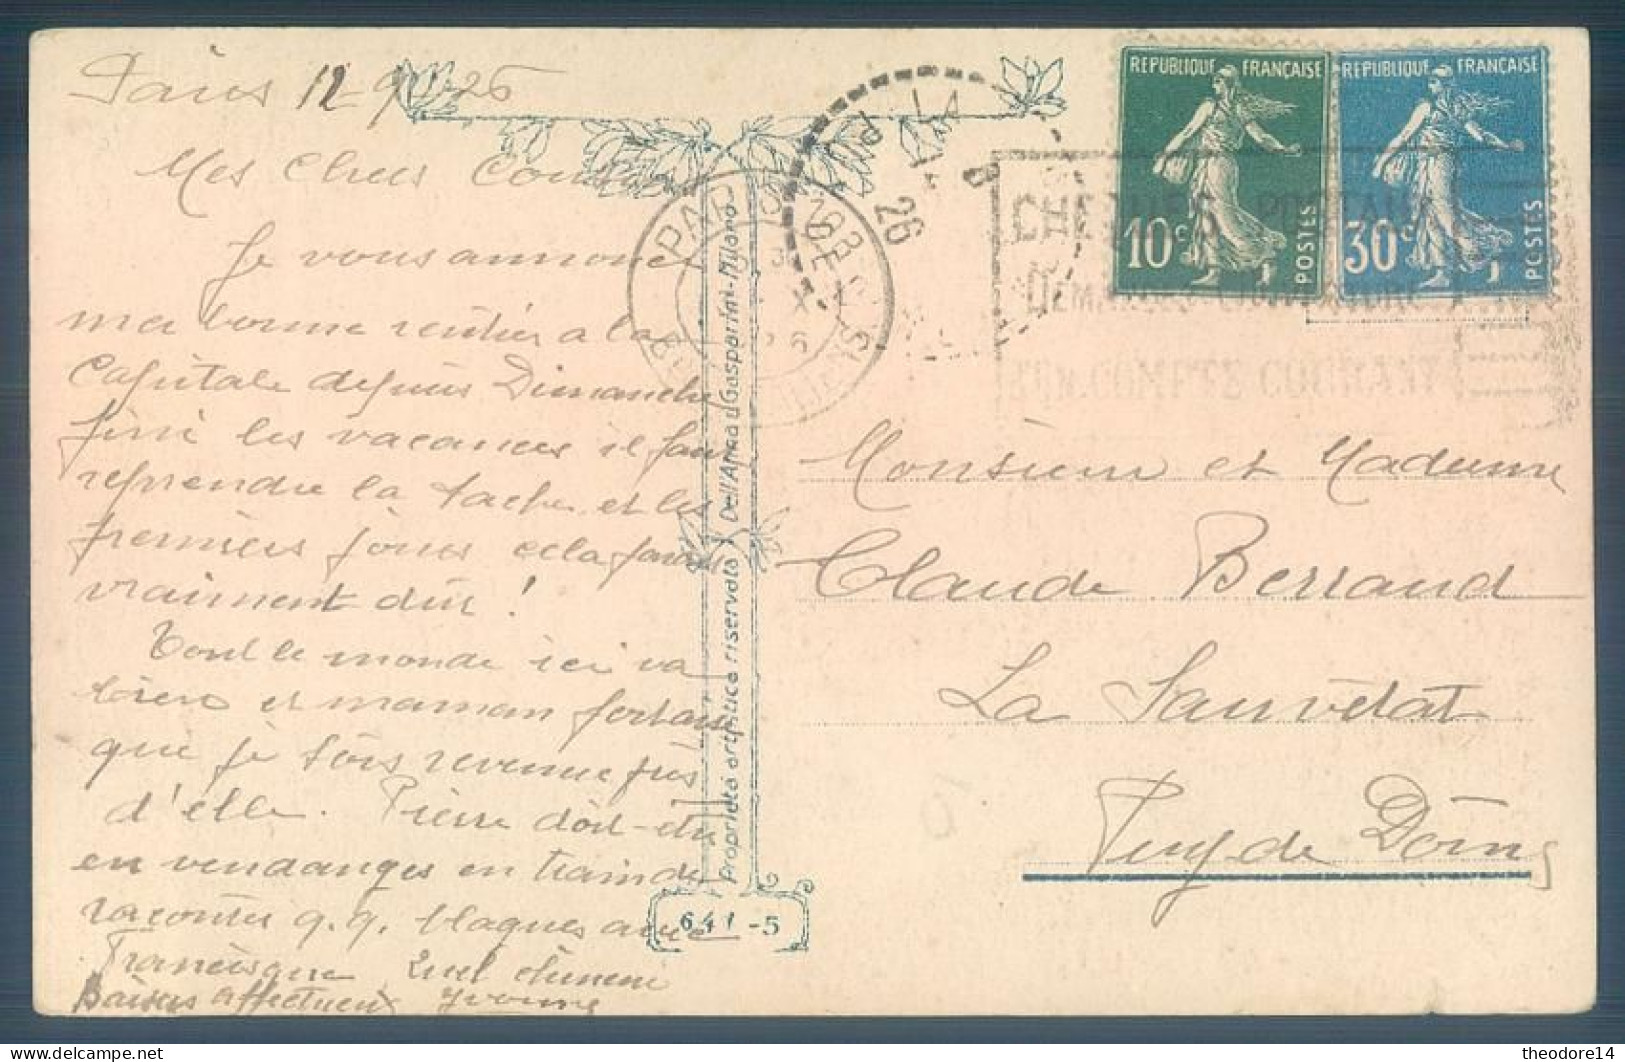 Paris 12 9 26
Mes Chers Cous
Je vous annonce
ma bonne rentrée a la
Capitale depuis Dimanche
fini les vacances il faut
reprendre la tache, et les
premiers jours cela parait
vraiment dur !
Tout le monde ici va
bien et maman
que je sois revenue près
d'elle. Pierre doit-être
en vendanges en train de
raconter q.q. blagues avec
Francisque Quel
Baisers affectueux Yvonne
Proprietà artistica riservata Dell'Anna & Gasparini-Milano
641-5
PARIS
26
REPUBLIQUE FRANÇAISE
10c
POSTES
REPUBLIQUE FRANÇAISE
30c
POSTES
CHEQUES POSTAUX
DEMANDEZ L'OUVERTURE
D'UN COMPTE COURANT
Monsieur et Madame
Claude Berraud
La Sauvetat
Puy de Dôme
theodore14